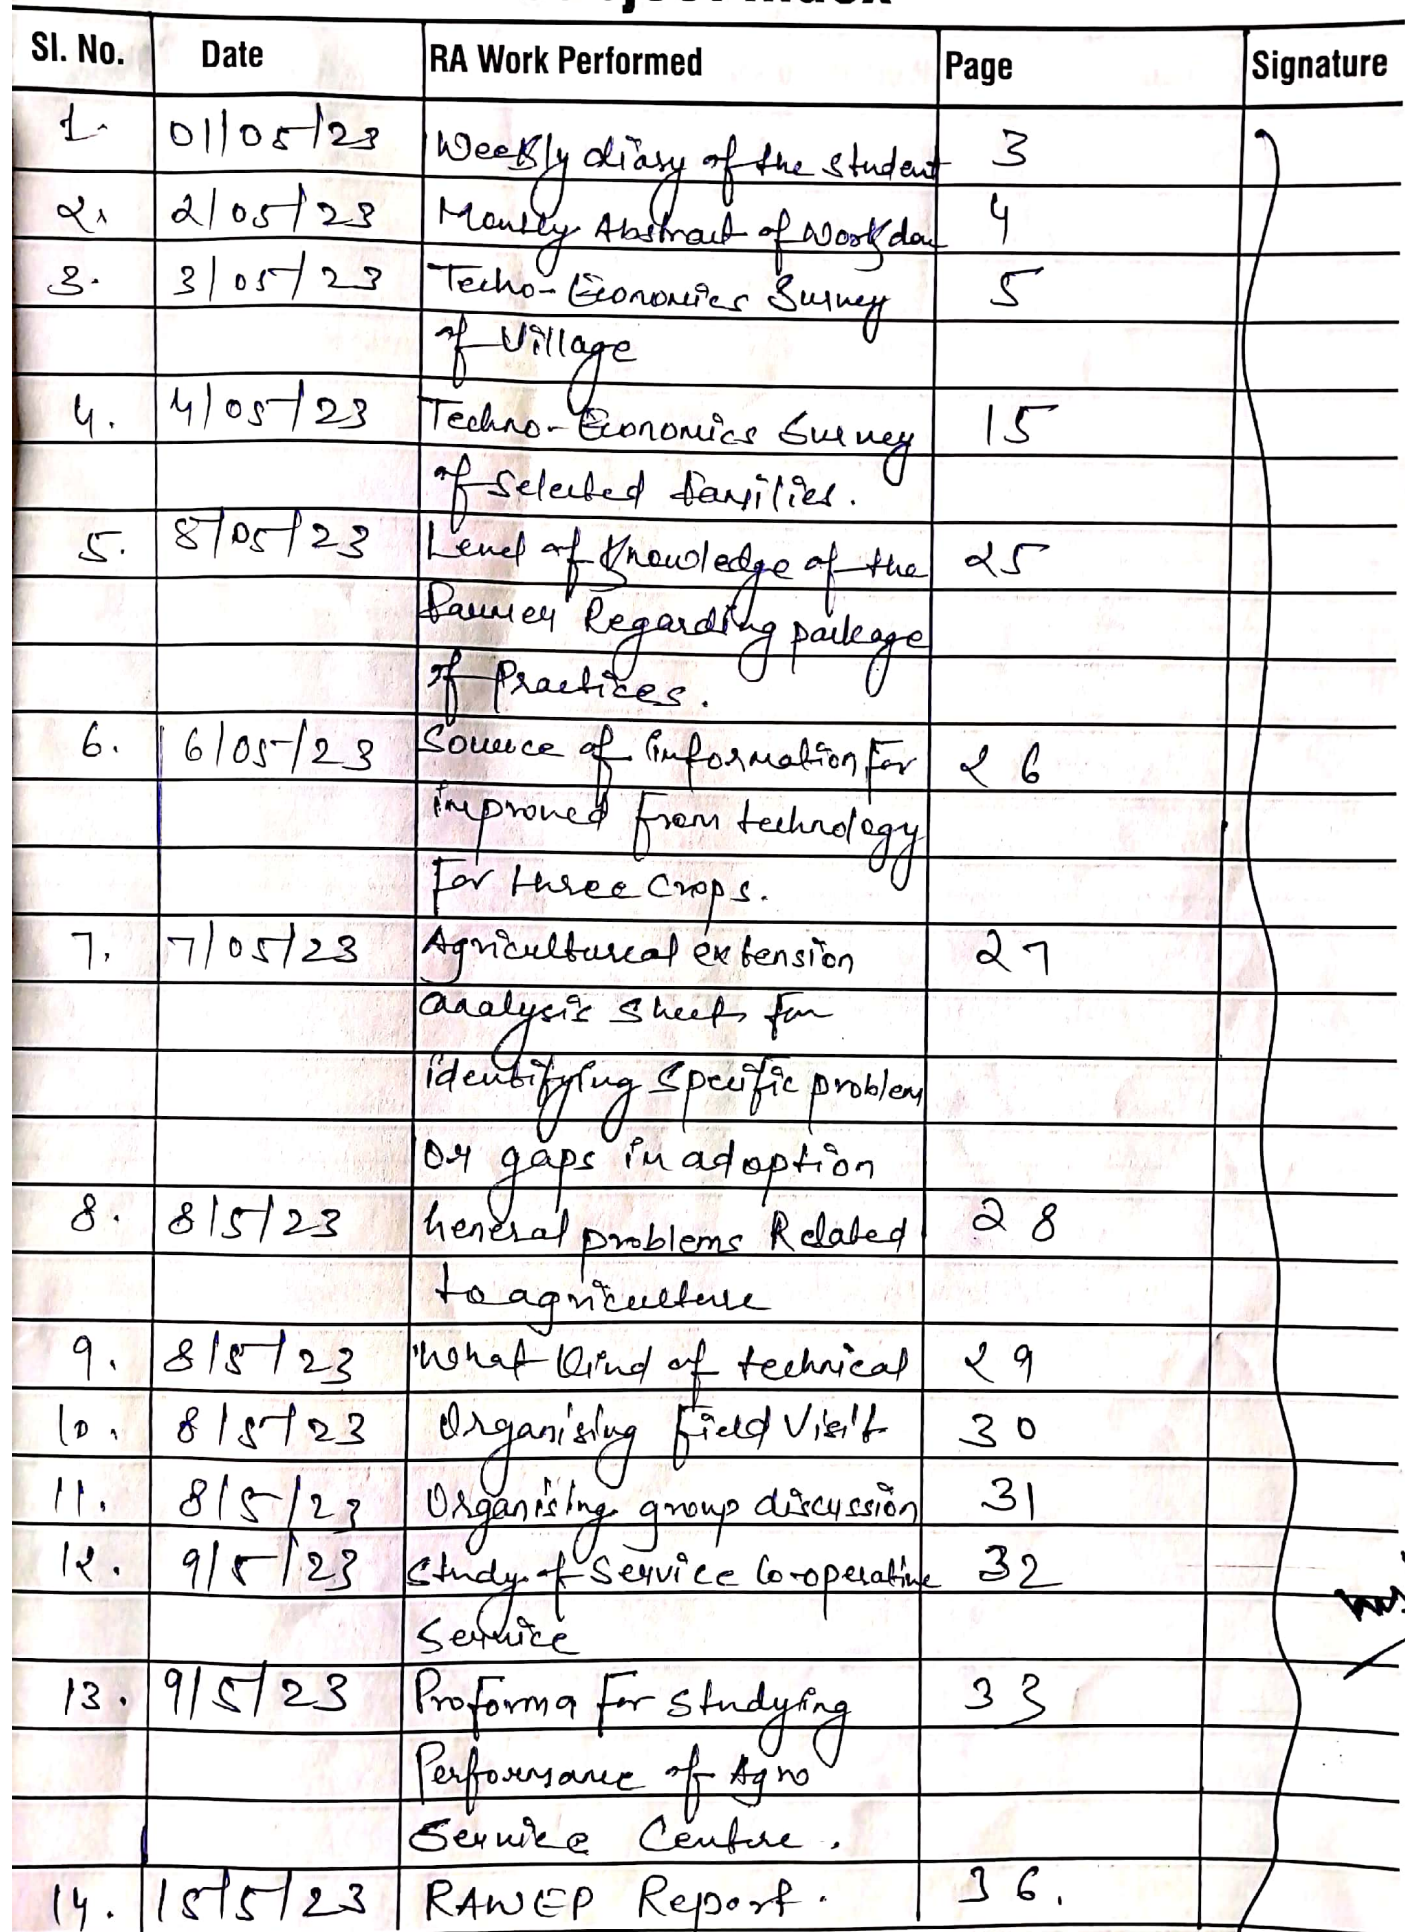 Sl. No. Date RA Work Performed Page Signature
1. 01/05/23 Weekly diary of the student 3
2. 2/05/23 Montly Abstract of Work done 4
3. 3/05/23 Techo-Economics Survey 5
of Village
4. 4/05/23 Techno-Economics Survey 15
of Selected families.
5. 8/05/23 Level of Knowledge of the 25
farmer Regarding package
of Practices.
6. 6/05/23 Source of information For 26
improved from technology
For three Crops.
7. 7/05/23 Agricultureal extension 27
analysis sheets for
identifying Specific problem
or gaps in adoption
8. 8/5/23 General problems Related 28
to agriculture
9. 8/5/23 What kind of technical 29
10. 8/5/23 Organising Field Visit 30
11. 8/5/23 Organising group discussion 31
12. 9/5/23 Study of Service Co-operative 32
Service
13. 9/5/23 Proforma For Studying 33
Performance of Agro
Service Centre.
14. 15/5/23 RAWEP Report. 36.